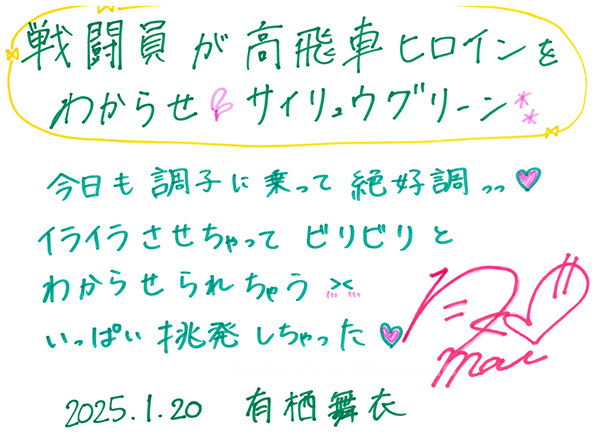 戦闘員が高飛車ヒロインを
わからせ サイリュウグリーン
今日も調子に乗って絶好調っっ♥
イライラさせちゃってビリビリと
わからせられちゃう ><
いっぱい挑発しちゃった♥
mai
2025.1.20 有栖舞衣